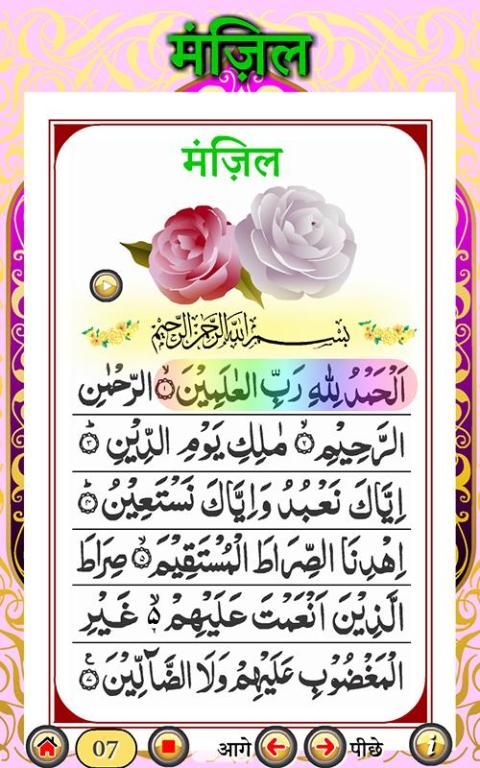 मंज़िल
मंज़िल
بِسْمِ اللهِ الرَّحْمٰنِ الرَّحِيْمِ
اَلْحَمْدُ لِلّٰهِ رَبِّ الْعٰلَمِيْنَ ۝۱ الرَّحْمٰنِ
الرَّحِيْمِ ۝۲ مٰلِكِ يَوْمِ الدِّيْنِ ۝۳ؕ
اِيَّاكَ نَعْبُدُ وَاِيَّاكَ نَسْتَعِيْنُ ۝۴ؕ
اِهْدِنَا الصِّرَاطَ الْمُسْتَقِيْمَ ۝۵ صِرَاطَ
الَّذِيْنَ اَنْعَمْتَ عَلَيْهِمْ ۵ غَيْرِ
الْمَغْضُوْبِ عَلَيْهِمْ وَلَا الضَّآلِّيْنَ ۝۷
07 आगे पीछे i